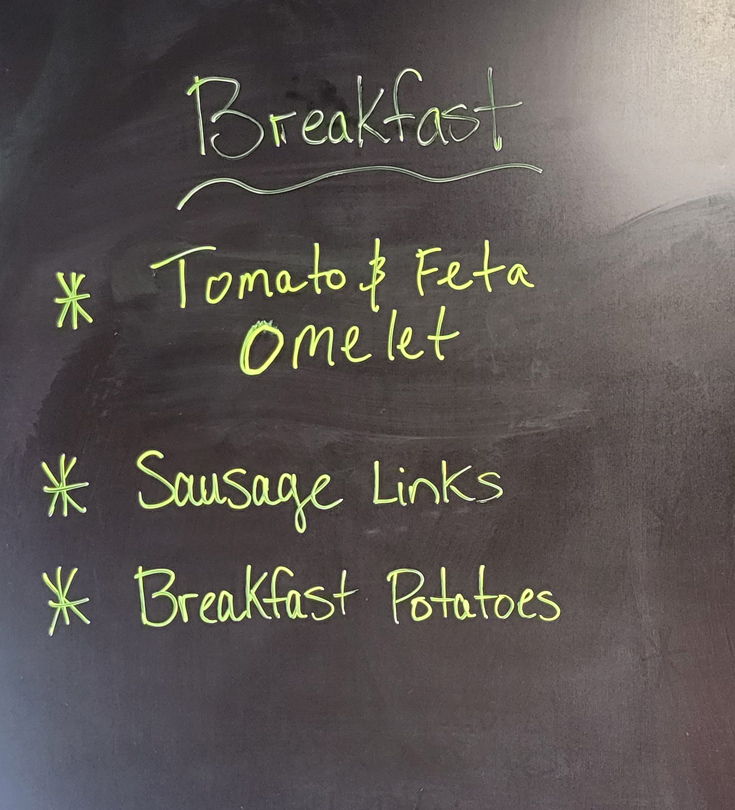 Breakfast
* Tomato & Feta
Omelet
* Sausage Links
* Breakfast Potatoes